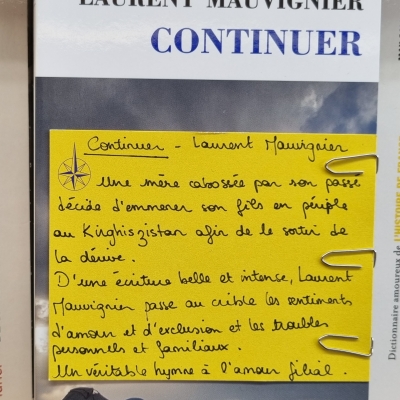 LAURENT MAUVIGNIER
CONTINUER
Continuer - Laurent Mauvignier
Une mère cabossée par son passé
décide d'emmener son fils en périple
au Kirghizistan afin de le sortir de
la dérive.
D'une écriture belle et intense, Laurent
Mauvignier passe au crible les sentiments
d'amour et d'exclusion et les troubles
personnels et familiaux.
Un véritable hymne à l'amour filial.
Dictionnaire amoureux de L'HISTOIRE DE FRANCE